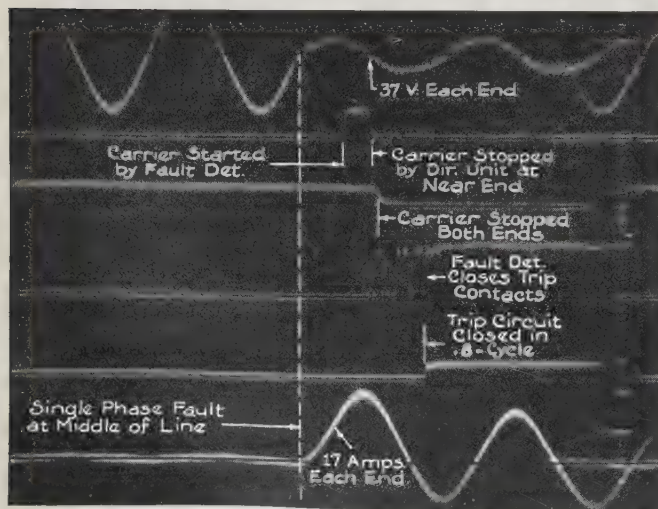 37 V. Each End
Carrier Started
by Fault Det.
Carrier Stopped
by Dir. Unit at
Near End
Carrier Stopped
Both Ends
Fault Det.
Closes Trip
Contacts
Trip Circuit
Closed in
.8-Cycle
Single Phase Fault
at Middle of Line
17 Amps.
Each End